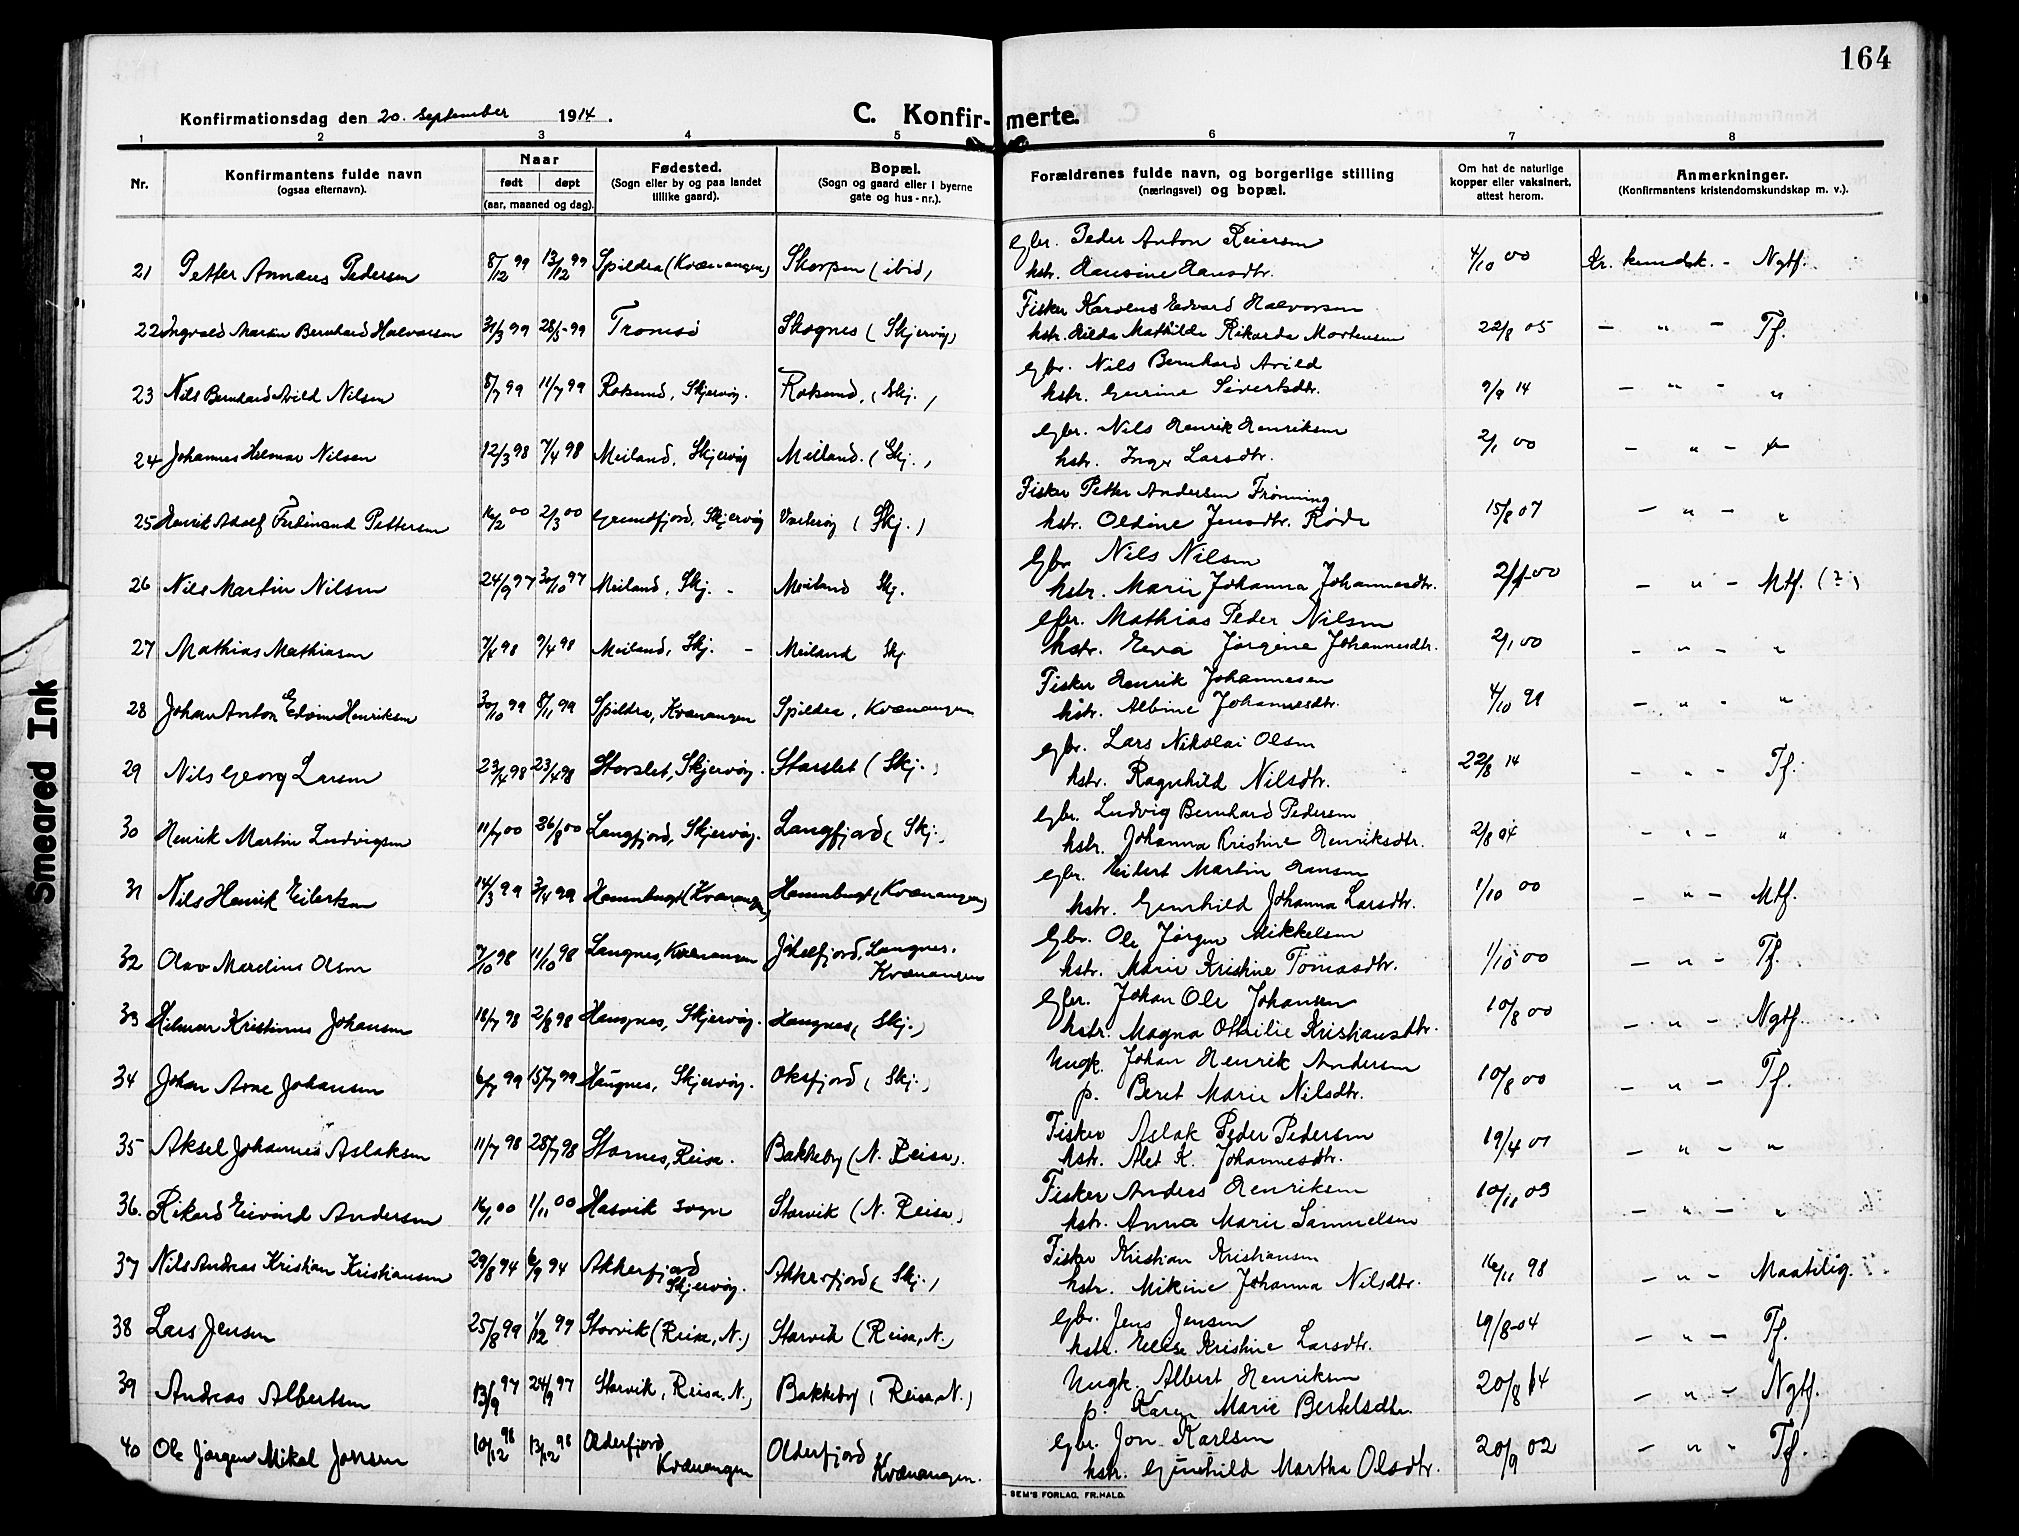 164
Konfirmationsdag den 20. september 1914.
C. Konfirmerte.
1 2 3 4 5 6 7 8
Nr.
Konfirmantens fulde navn
(ogsaa efternavn).
Naar
født døpt
(aar, maaned og dag).
Fødested.
(Sogn eller by og paa landet
tillike gaard).
Bopæl.
(Sogn og gaard eller i byerne
gate og hus-nr.).
Forældrenes fulde navn, og borgerlige stilling
(næringsvei) og bopæl.
Om hat de naturlige
kopper eller vaksinert,
attest herom.
Anmerkninger.
(Konfirmantens kristendomskundskap m. v.).
Gbr. Peder Anton Reiersen
21 Petter Annæus Pedersen 8/12 99 13/12 99 Spildra (Kvænangen) Skorpen (ibid) hstr. Hansine Hansdtr. 4/10 00 Kr. kundsk. - Ngtf.
Fisker Karolus Edvard Halvorsen
22 Ingvald Martin Bernhard Halvorsen 31/3 99 28/5-99 Tromsø Skognes (Skjervøy) hstr. Hilda Mathilde Rikarda Mortensen 22/8 05 - " - Tf.
Gbr. Nils Bernhard Arild
23 Nils Bernhard Arild Nilsen 8/7 99 11/7 99 Rotsund, Skjervøy. Rotsund, (Skj.) hstr. Gurine Sivertsdtr. 9/9 14 - " - "
Gbr. Nils Henrik Henriksen
24 Johannes Helmar Nilsen 12/3 98 7/4 98 Meiland, Skjervøy Meiland. (Skj.) hstr. Inger Larsdtr. 2/1 00 - " - "
Fisker Petter Andersen Frønning
25 Henrik Adolf Ferdinand Pettersen 16/2 00 2/3 00 Grundfjord, Skjervøy (Skj.) hstr. Oldine Jensdtr. Røde 15/8 07 - " - "
Gbr. Nils Nilsen
26 Nils Martin Nilsen 24/9 97 30/10 97 Meiland, Skj. - Meiland Skj. hstr. Marie Johanna Johannesdtr. 2/1-00 - " - Mtf. (?)
Gbr. Mathias Peder Nilsen
27 Mathias Mathiasen 7/4 98 9/4 98 Meiland, Skj. - Meiland Skj hstr. Eva Jørgine Johannesdtr. 2/1 00 - " - "
Fisker Henrik Johannesen
28 Johan Anton Edvin Henriksen 30/10 99 8/11 99 Spildra, Kvænangen Spildra, Kvænangen hstr. Albine Johannesdtr. 4/10 99 - " - "
Gbr. Lars Nikolai Olsen
29 Nils Georg Larsen 23/4 98 23/4 98 Storslet, Skjervøy. Storslet (Skj.) hstr. Ragnhild Nilsdtr. 22/8 14 - " - Tf.
Gbr. Ludvig Bernhard Pedersen
30 Henrik Martin Ludvigsen 11/7 00 26/8 00 Langfjord, Skjervøy. Langfjord (Skj.) hstr. Johanna Kristine Henriksdtr. 2/8 04 - " - "
Gbr. Eilert Martin Hansen
31 Nils Henrik Eilertsen 14/3 99 3/4 99 Hamnbugt (Kvænangen) Hamnbugt (Kvænangen) hstr. Gunhild Johanna Larsdtr. 1/10 00 - " - Mtf.
Gbr. Ole Jørgen Mikkelsen
32 Olav Mardius Olsen 7/10 98 11/10 98 Langnes, Kvænangen Jøkelfjord, Langnes. Kvænangen hstr. Marie Kristine Tomasdtr. 1/10 00 - " - Tf.
Gbr. Johan Ole Johansen
33 Hilmar Kristinus Johansen 18/7 98 2/8 98 Haugnes, Skjervøy. Haugnes, (Skj.) hstr. Magna Othilie Kristiansdtr. 10/8 00 - " - Ngtf.
Ungk. Johan Henrik Andersen
34 Johan Arne Johansen 6/7 99 15/7 99 Haugnes, Skjervøy. Oksfjord (Skj.) p. Beret Marie Nilsdtr. 10/8 00 - " - Tf.
Fisker Aslak Peder Pedersen
35 Aksel Johannes Aslaksen 11/7 98 28/7 98 Stornes, Reisa. Bakkeby (N. Reisa). hstr. Alet K. Johannesdtr. 19/4 01 - " - "
Fisker Anders Henriksen
36. Rikard Eivind Andersen 16/1 00 1/11 00 Hasvik sogn Storvik (N. Reisa) hstr. Anna Marie Samuelsen 10/11 03 - " - "
Fisker Kristian Kristiansen
37 Nils Andreas Kristian Kristiansen 29/8 94 6/9 94 Akkerfjord Skjervøy. Akkerfjord (Skj.) hstr. Mikine Johanna Nilsdtr. 16/11 98 - " - Maatelig.
Gbr. Jens Jensen
38 Lars Jensen 25/8 99 1/12 99 Storvik (Reisa, N.) Storvik (Reisa, N.) hstr. Elise Kristine Larsdtr. 19/8-04 - " - Tf.
Ungk. Albert Henriksen
39 Andreas Albertsen 13/9 97 24/9 97 Storvik, Reisa. N.) Bakkeby (Reisa, N.) p. Karen Marie Bertelsdtr. 20/8 14 - " - Ngtf.
Gbr. Jon Karlsen
40 Ole Jørgen Mikal Jonsen 10/12 98 13/12 98 Olderfjord Kvænangen Olderfjord Kvænangen. hstr. Gunhild Martha Olsdtr. 20/9 02 - " - Tf.
SEM'S FORLAG, FR.HALD.
Smeared Ink